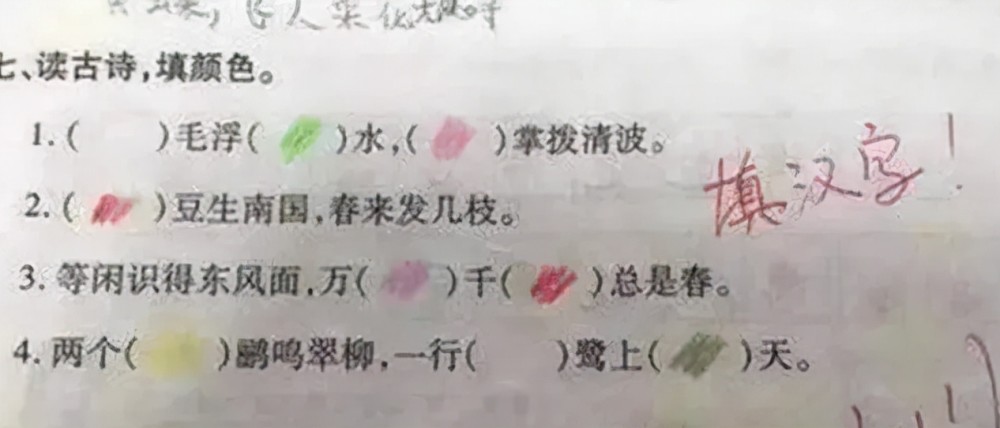 七、读古诗,填颜色。
1.( )毛浮( )水,( )掌拨清波。
填汉字!
2.( )豆生南国,春来发几枝。
3.等闲识得东风面,万( )千( )总是春。
4.两个( )鹂鸣翠柳,一行( )鹭上( )天。